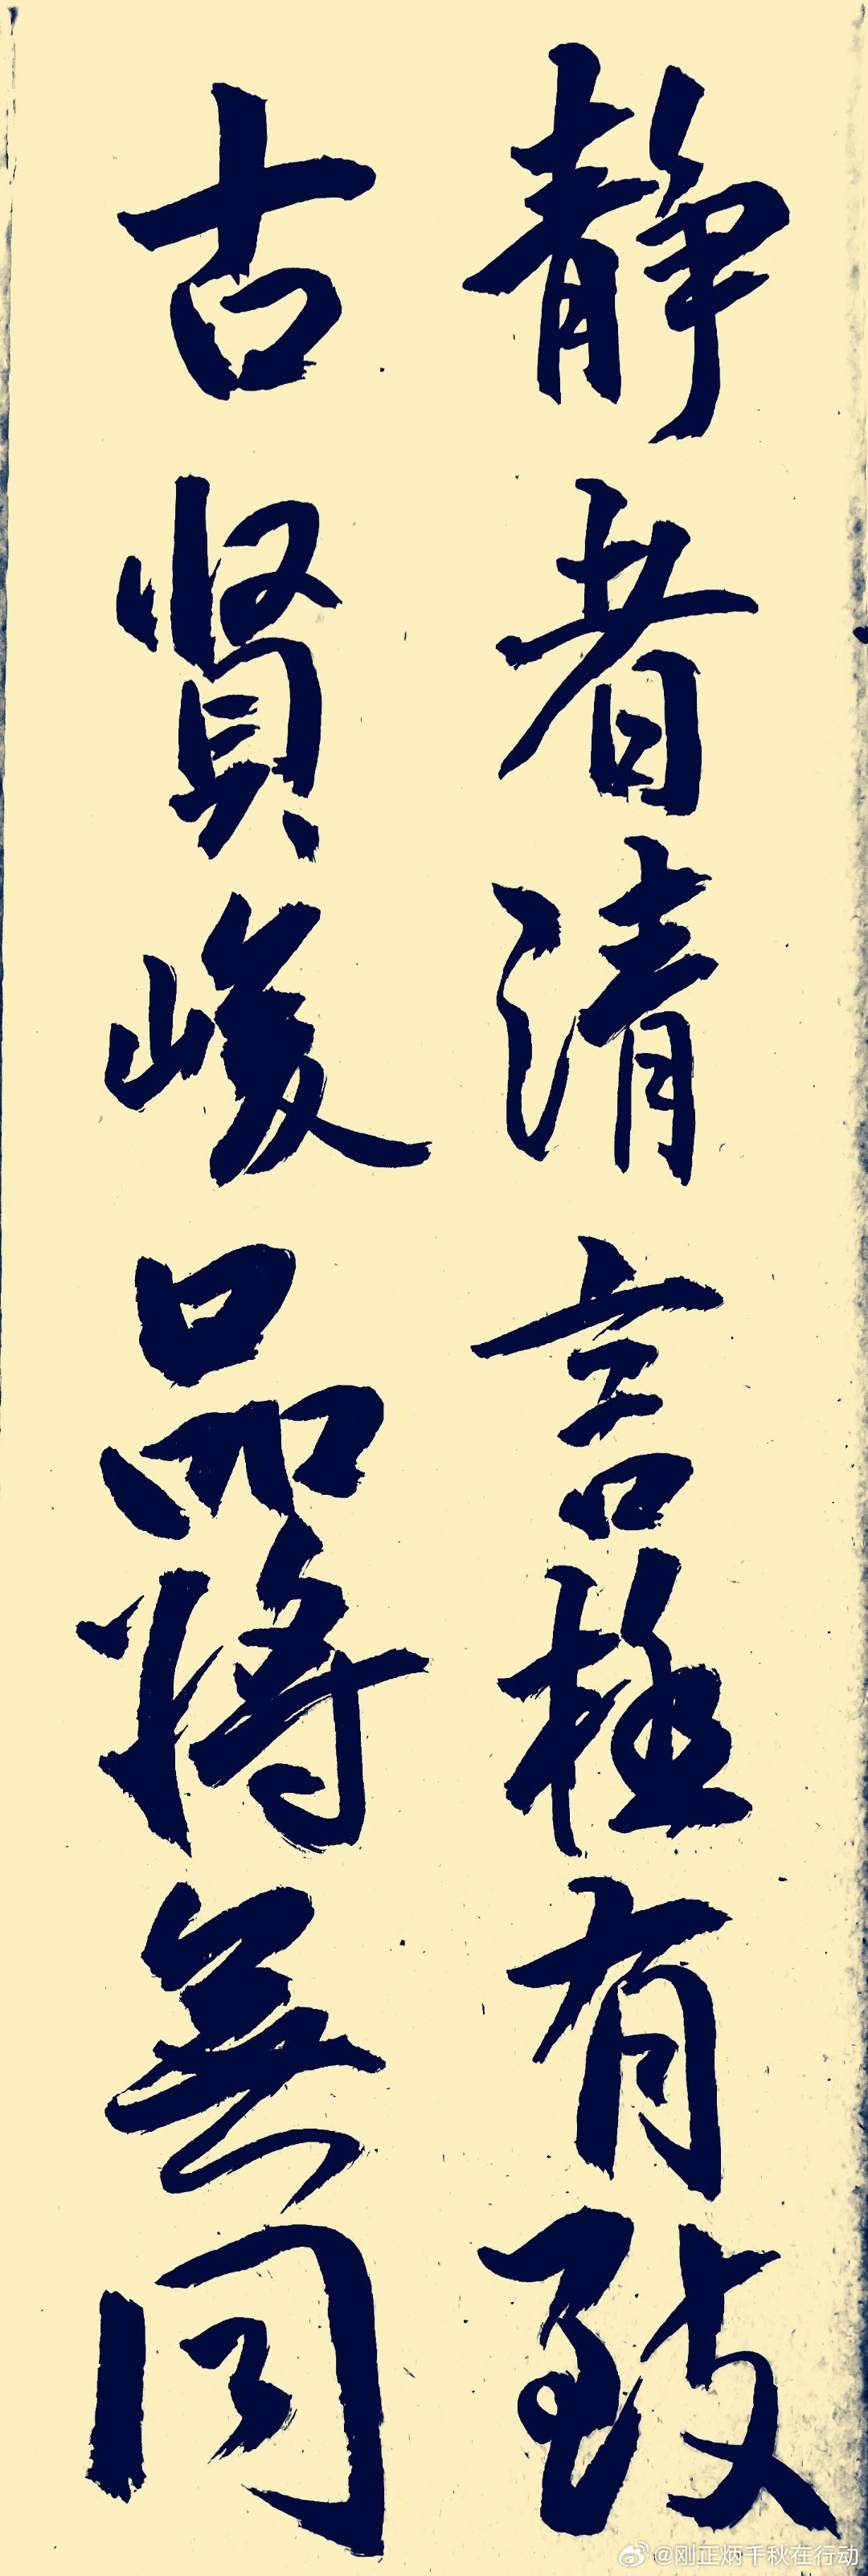 静者清言極有致
古賢峻品將無同
@刚正炳千秋在行动